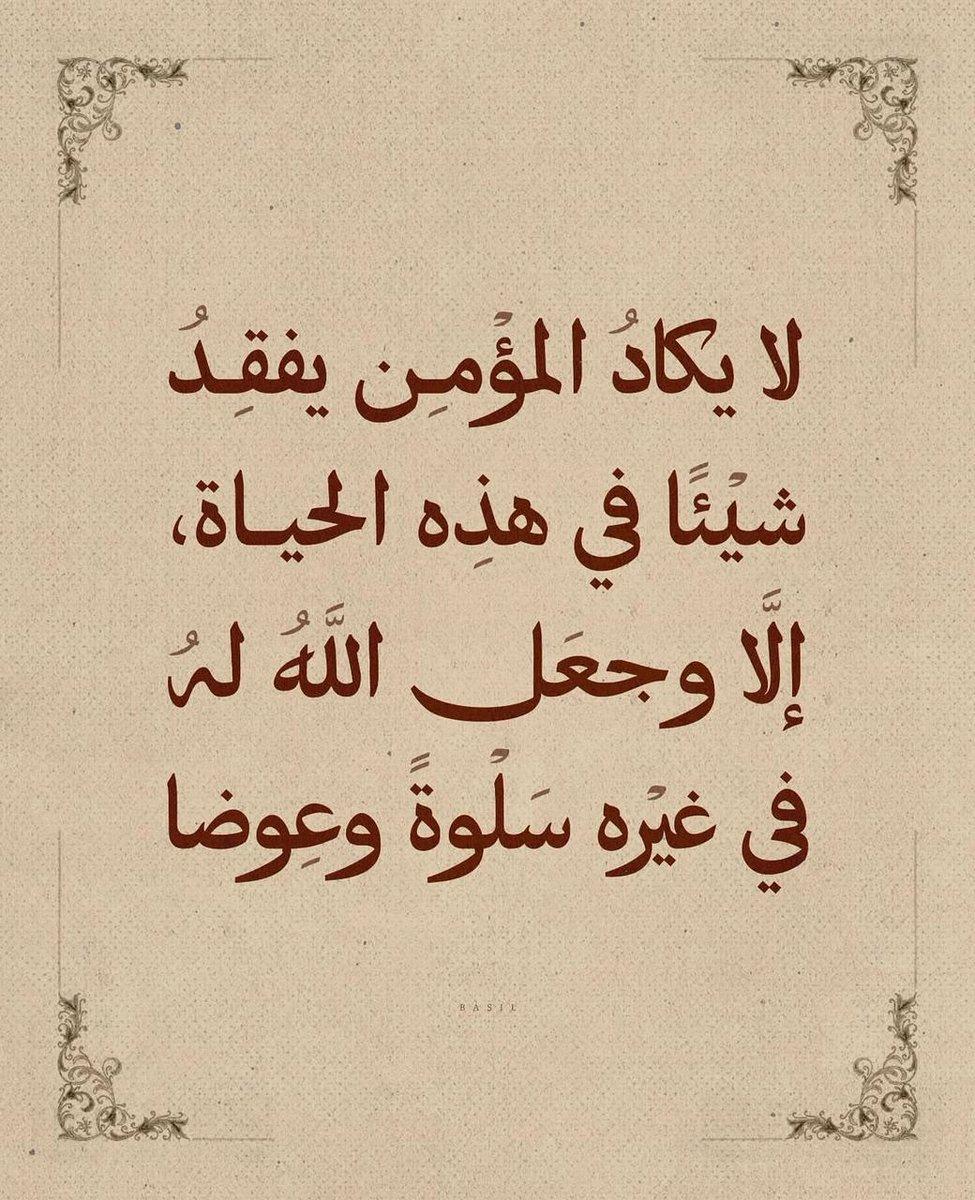 لا يكادُ المؤْمِن يفقِدُ
شيْئًا في هذِه الحياة،
إلَّا وجعَل اللَّهُ لهُ
في غيْرِه سَلْوةً وعِوضا
BASIL